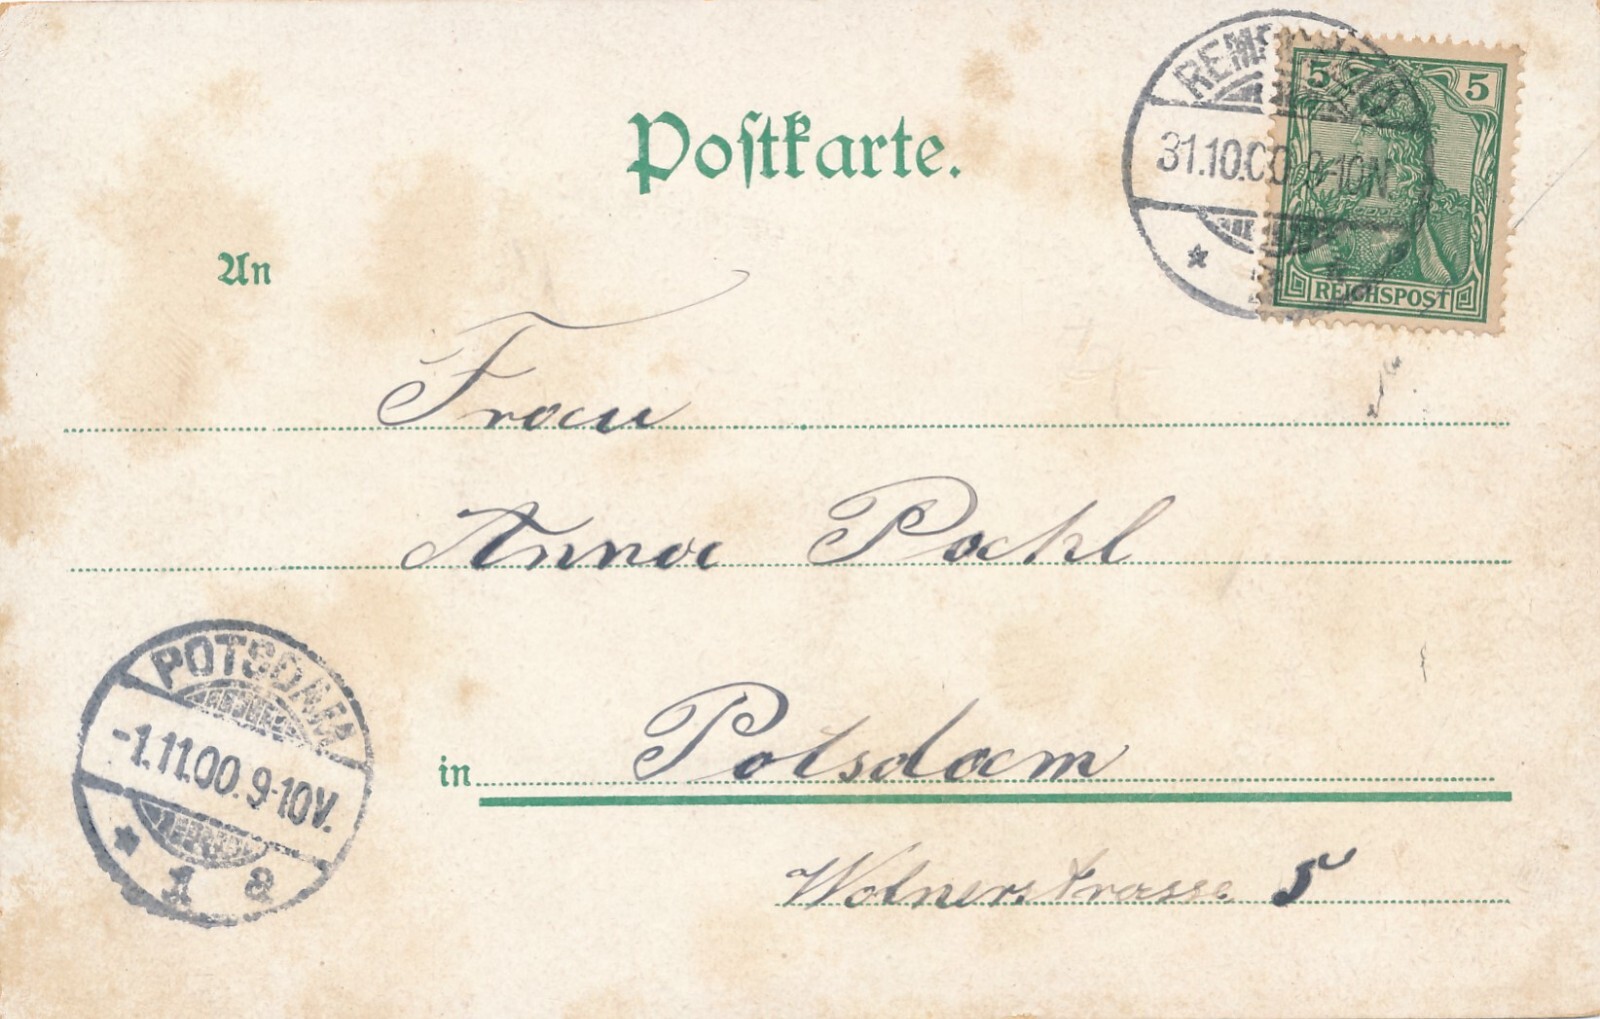 Postkarte.
REMSCHEID
31.10.00. 9-10N.
5 5
REICHSPOST
An
Frau
Anna Pohl
POTSDAM
-1.11.00. 9-10V.
* 1 a
in Potsdam
5